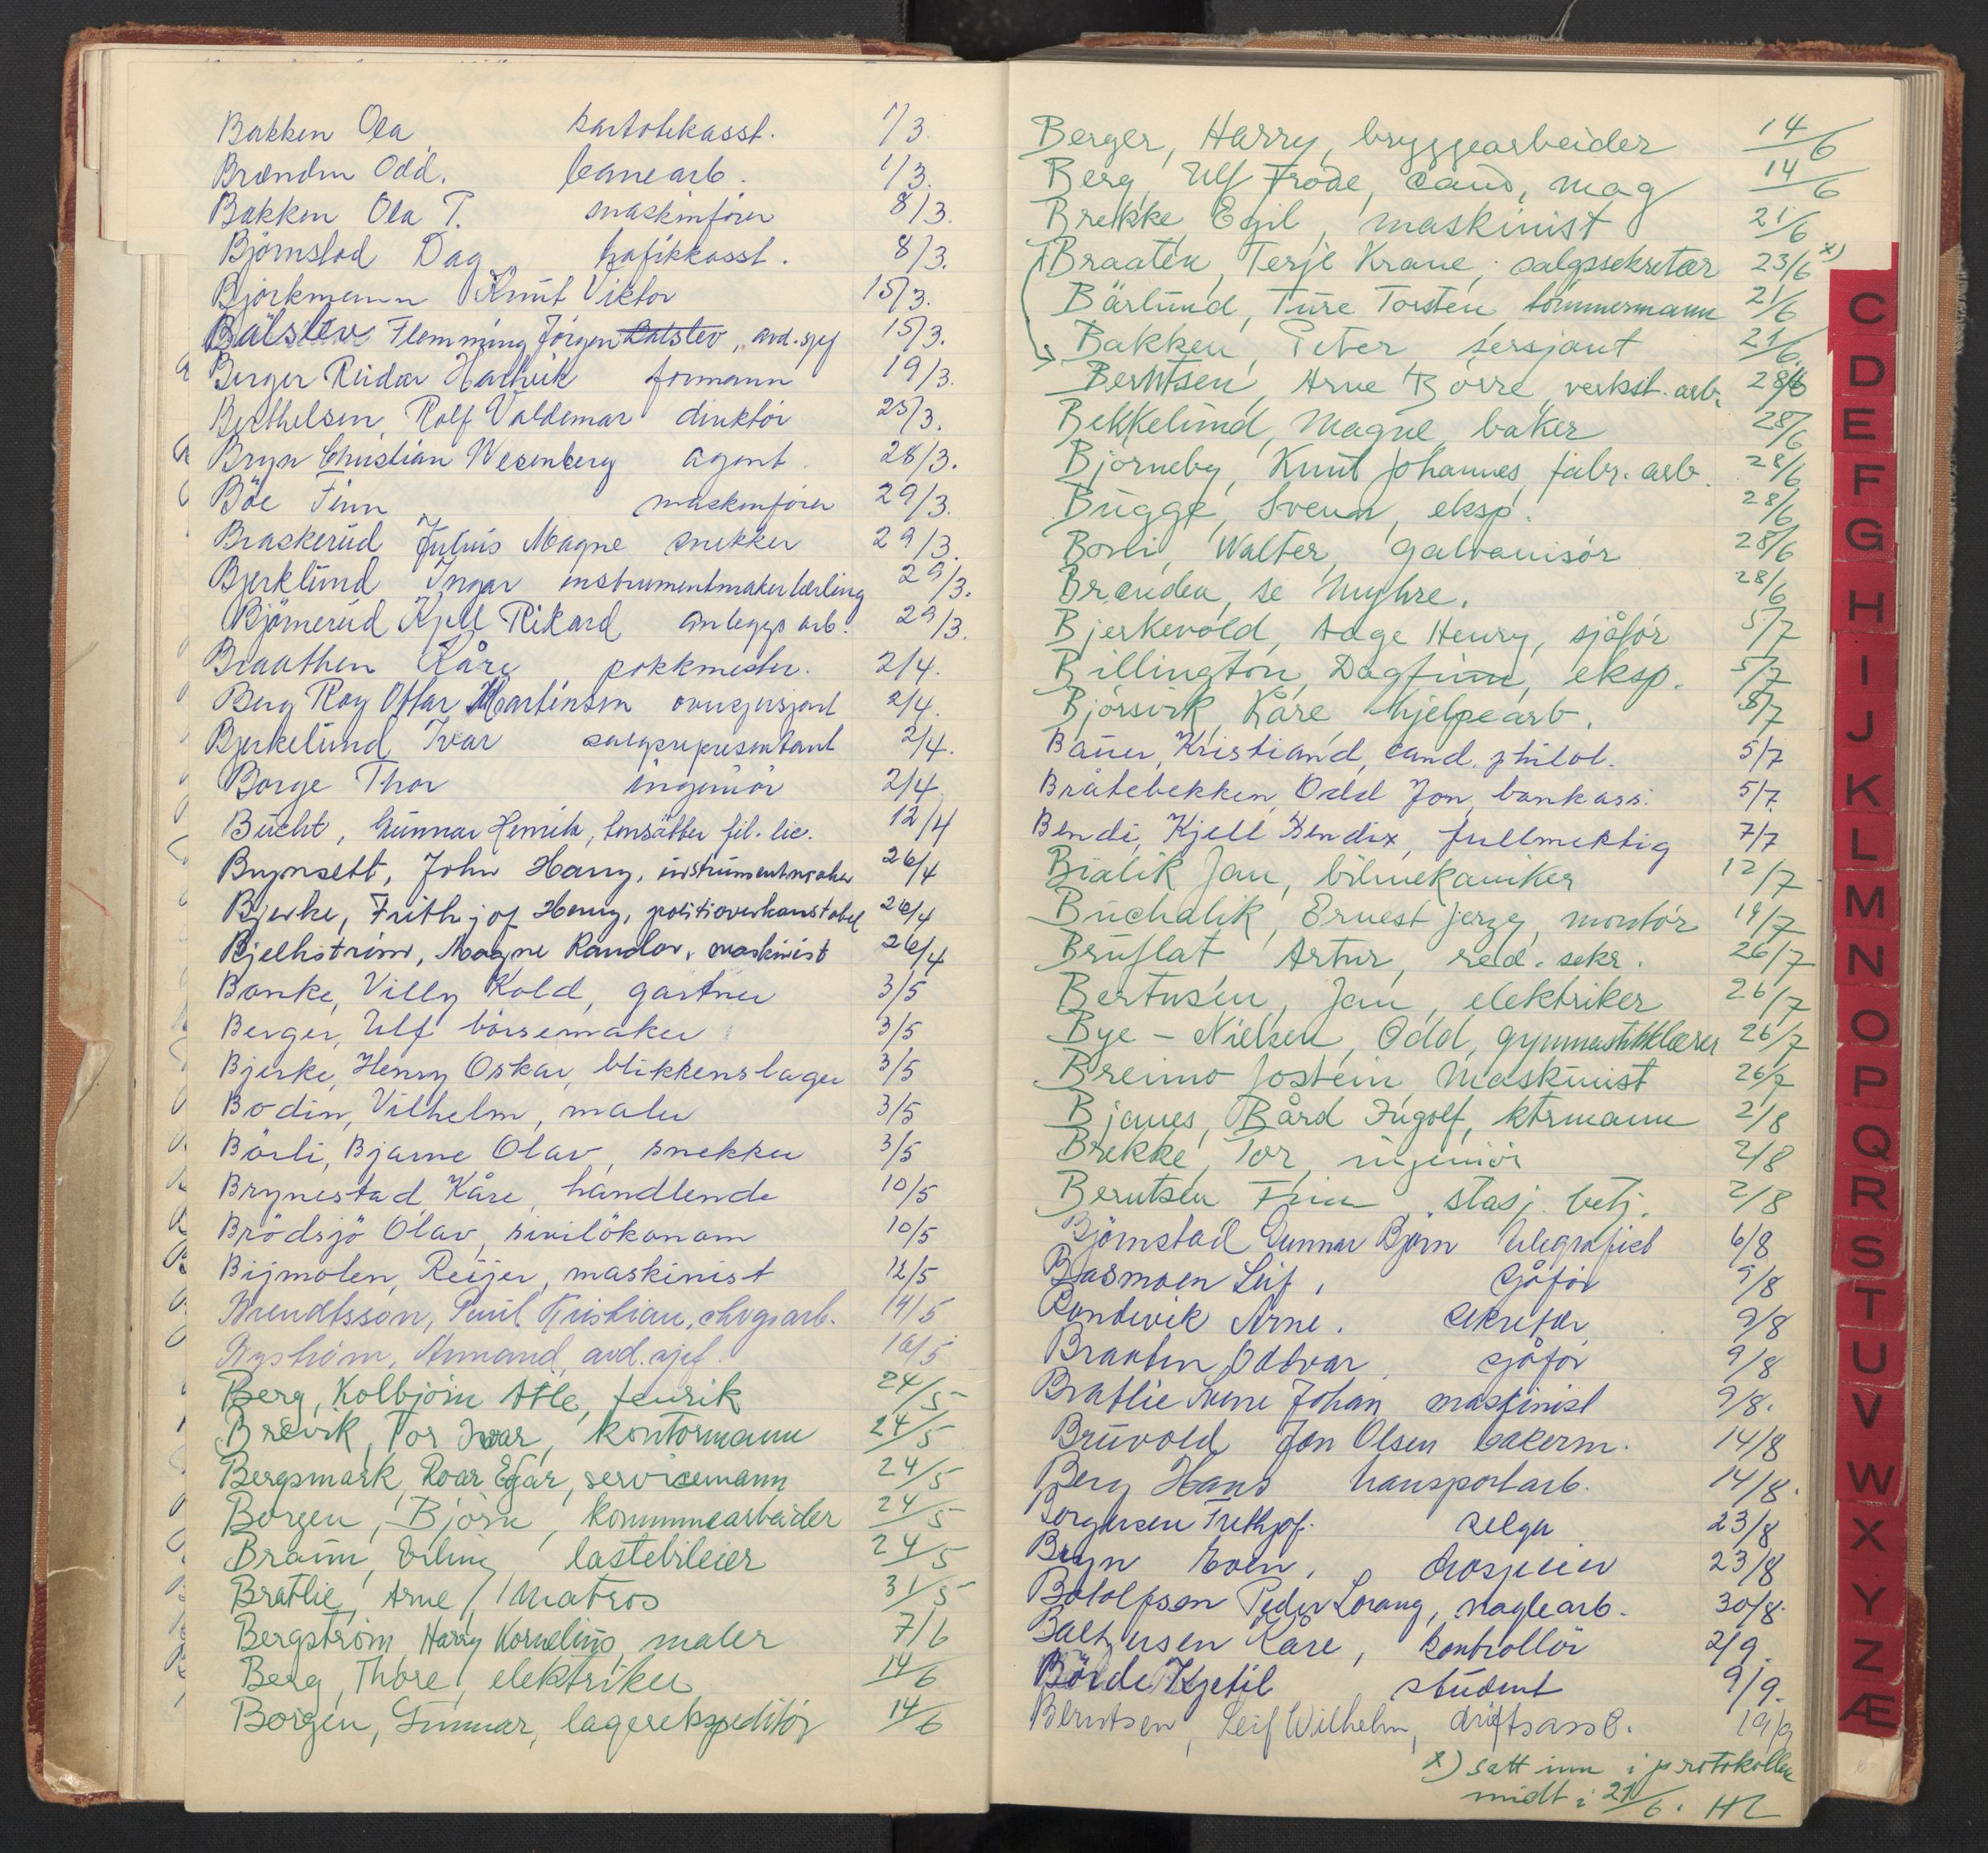 Bakken Ola kartotekasst. 1/3
Brænden Odd. banearb. 1/3.
Bakken Ola T. maskinfører 8/3.
Björnstad Dag trafikkasst. 8/3.
Bjørkmann Knut Viktor 15/3.
Balslev Flemming Jörgen Balslev, avd. sjef 15/3.
Berger Reidar Hartvik formann 19/3.
Berthelsen, Rolf Valdemar direktör 25/3.
Bryn Christian Wesenberg agent. 28/3.
Böe Finn maskinfører 29/3.
Braskerud Julius Magne snekker 29/3.
Bjerklund Ingar instrumentmakerlærling 29/3.
Björnerud Kjell Rikard anleggsarb. 29/3.
Braathen Kåre pokkmester. 2/4.
Berg Roy Ottar Martinsen oversersjant 2/4.
Bjerkelund Ivar salgsrepresentant 2/4.
Borge Thor ingeniör 2/4.
Bucht, Gunnar Henrik, tonsätter fil. lic. 12/4
Brynsett, John Harry, instrumentmaker 26/4
Bjerke, Frithjof Henry, politioverkonstabel 26/4
Bjelkström, Magne Randor, maskinist 26/4
Banke, Villy Kold, gartner 3/5
Berger, Ulf börsemaker 3/5
Bjerke, Henry Oskar, blikkenslager 3/5
Bodin, Vilhelm, maler 3/5
Börli, Bjarne Olav, snekker 3/5
Brynestad, Kåre, handlende 10/5
Brödsjö Olav, sivilökonom 10/5
Bijmolen, Reijer, maskinist 12/5
Brendtsson, Emil Kristian, chvgsarb. 14/5
Nyström, Armand, avd. sjef. 16/5
Berg, Kolbjörn Atle, fenrik 24/5
Brevik, Tor Ivar, kontormann 24/5
Bergsmark, Roar Egar, servicemann 24/5
Borgen, Björn, kommunearbeider 24/5
Braun, Erling lastebileier 24/5
Bratlie, Arne, Matros 31/5
Bergström, Harry Kornelius, maler 7/6
Berg, Thore, elektriker 14/6
Borgen, Gunnar, lagerekspeditör 14/6
Berger, Harry, bryggearbeider 14/6
Berg, Ulf Frode, cand. mag 14/6
Brekke, Egil, maskinist 21/6
Braaten, Terje Krane, salgssekretær 23/6 x)
Bärlund, Ture Torsten, tömmermann 21/6
Bakken, Peter, sersjant 21/6.
Berntsen, Arne Börre, verkst. arb. 28/6
Bekkelund, Magne, baker 28/6
Björneby, Knut Johannes, fabr. arb. 28/6
Bugge, Svein, eksp. 28/6
Boni, Walter, galvanisör 28/6
Brænden, se Myhre. 28/6
Bjerkevold, Aage Henry, sjåför 5/7
Billington, Dagfinn, eksp. 5/7
Björsvik, Kåre, hjelpearb. 5/7
Bauer, Kristian d, cand. philol. 5/7
Bråtebekken, Odd Jon, bankass. 5/7.
Bendi, Kjell Bendix, fullmektig 7/7
Bialik Jan, bilmekaniker 12/7
Buchalik, Ernest Jerzy, montör 19/7
Bruflat Artur, red. sekr. 26/7
Bertusen, Jan, elektriker 26/7
Bye - Nielsen, Odd, gymnastikklærer 26/7
Breimo Jostein Maskinist 26/7
Bjanes, Bård Ingolf, ktrmann 2/8
Brekke, Tor, ingeniör 2/8
Berntsen Finn stasj. betj. 2/8
Björnstad Gunnar Björn telegrafist 6/8
Basmoen Leif, sjåför 9/8
Bondevik Arne. sekretær 9/8
Braaten Oddvar, sjåför 9/8
Bratlie Arne Johan maskinist 9/8.
Bruvold Jon Olsen bakerm. 14/8
Berg Hans transportarb. 14/8.
Borgersen Frithjof. selger 23/8
Bryn Even, drosjeeier 23/8
Botolfsen Peder Lorang, naglearb. 30/8.
Baltzersen Kåre, kontrollör 2/9.
Börde Kjetil student 9/9.
Berntsen, Leif Wilhelm, driftsass. 19/9
x) satt inn i protokollen
midt i 21/6. HL
C
D
E
F
G
H
I
J
K
L
M
N
O
P
Q
R
S
T
U
V
W
X
Y
Z
Æ